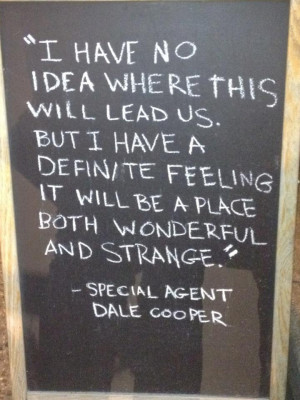 "I HAVE NO
IDEA WHERE THIS
WILL LEAD US.
BUT I HAVE A
DEFINITE FEELING
IT WILL BE A PLACE
BOTH WONDERFUL
AND STRANGE."
- SPECIAL AGENT
DALE COOPER